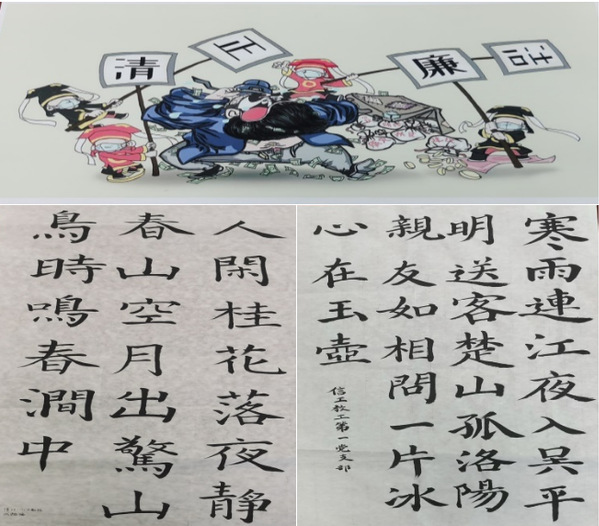 清
正
廉
洁
人閑桂花落夜靜
春山空月出驚山
鳥時鳴春澗中
寒雨連江夜入吳平
明送客楚山孤洛陽
親友如相問一片冰
心在玉壺
信工教工第一党支部